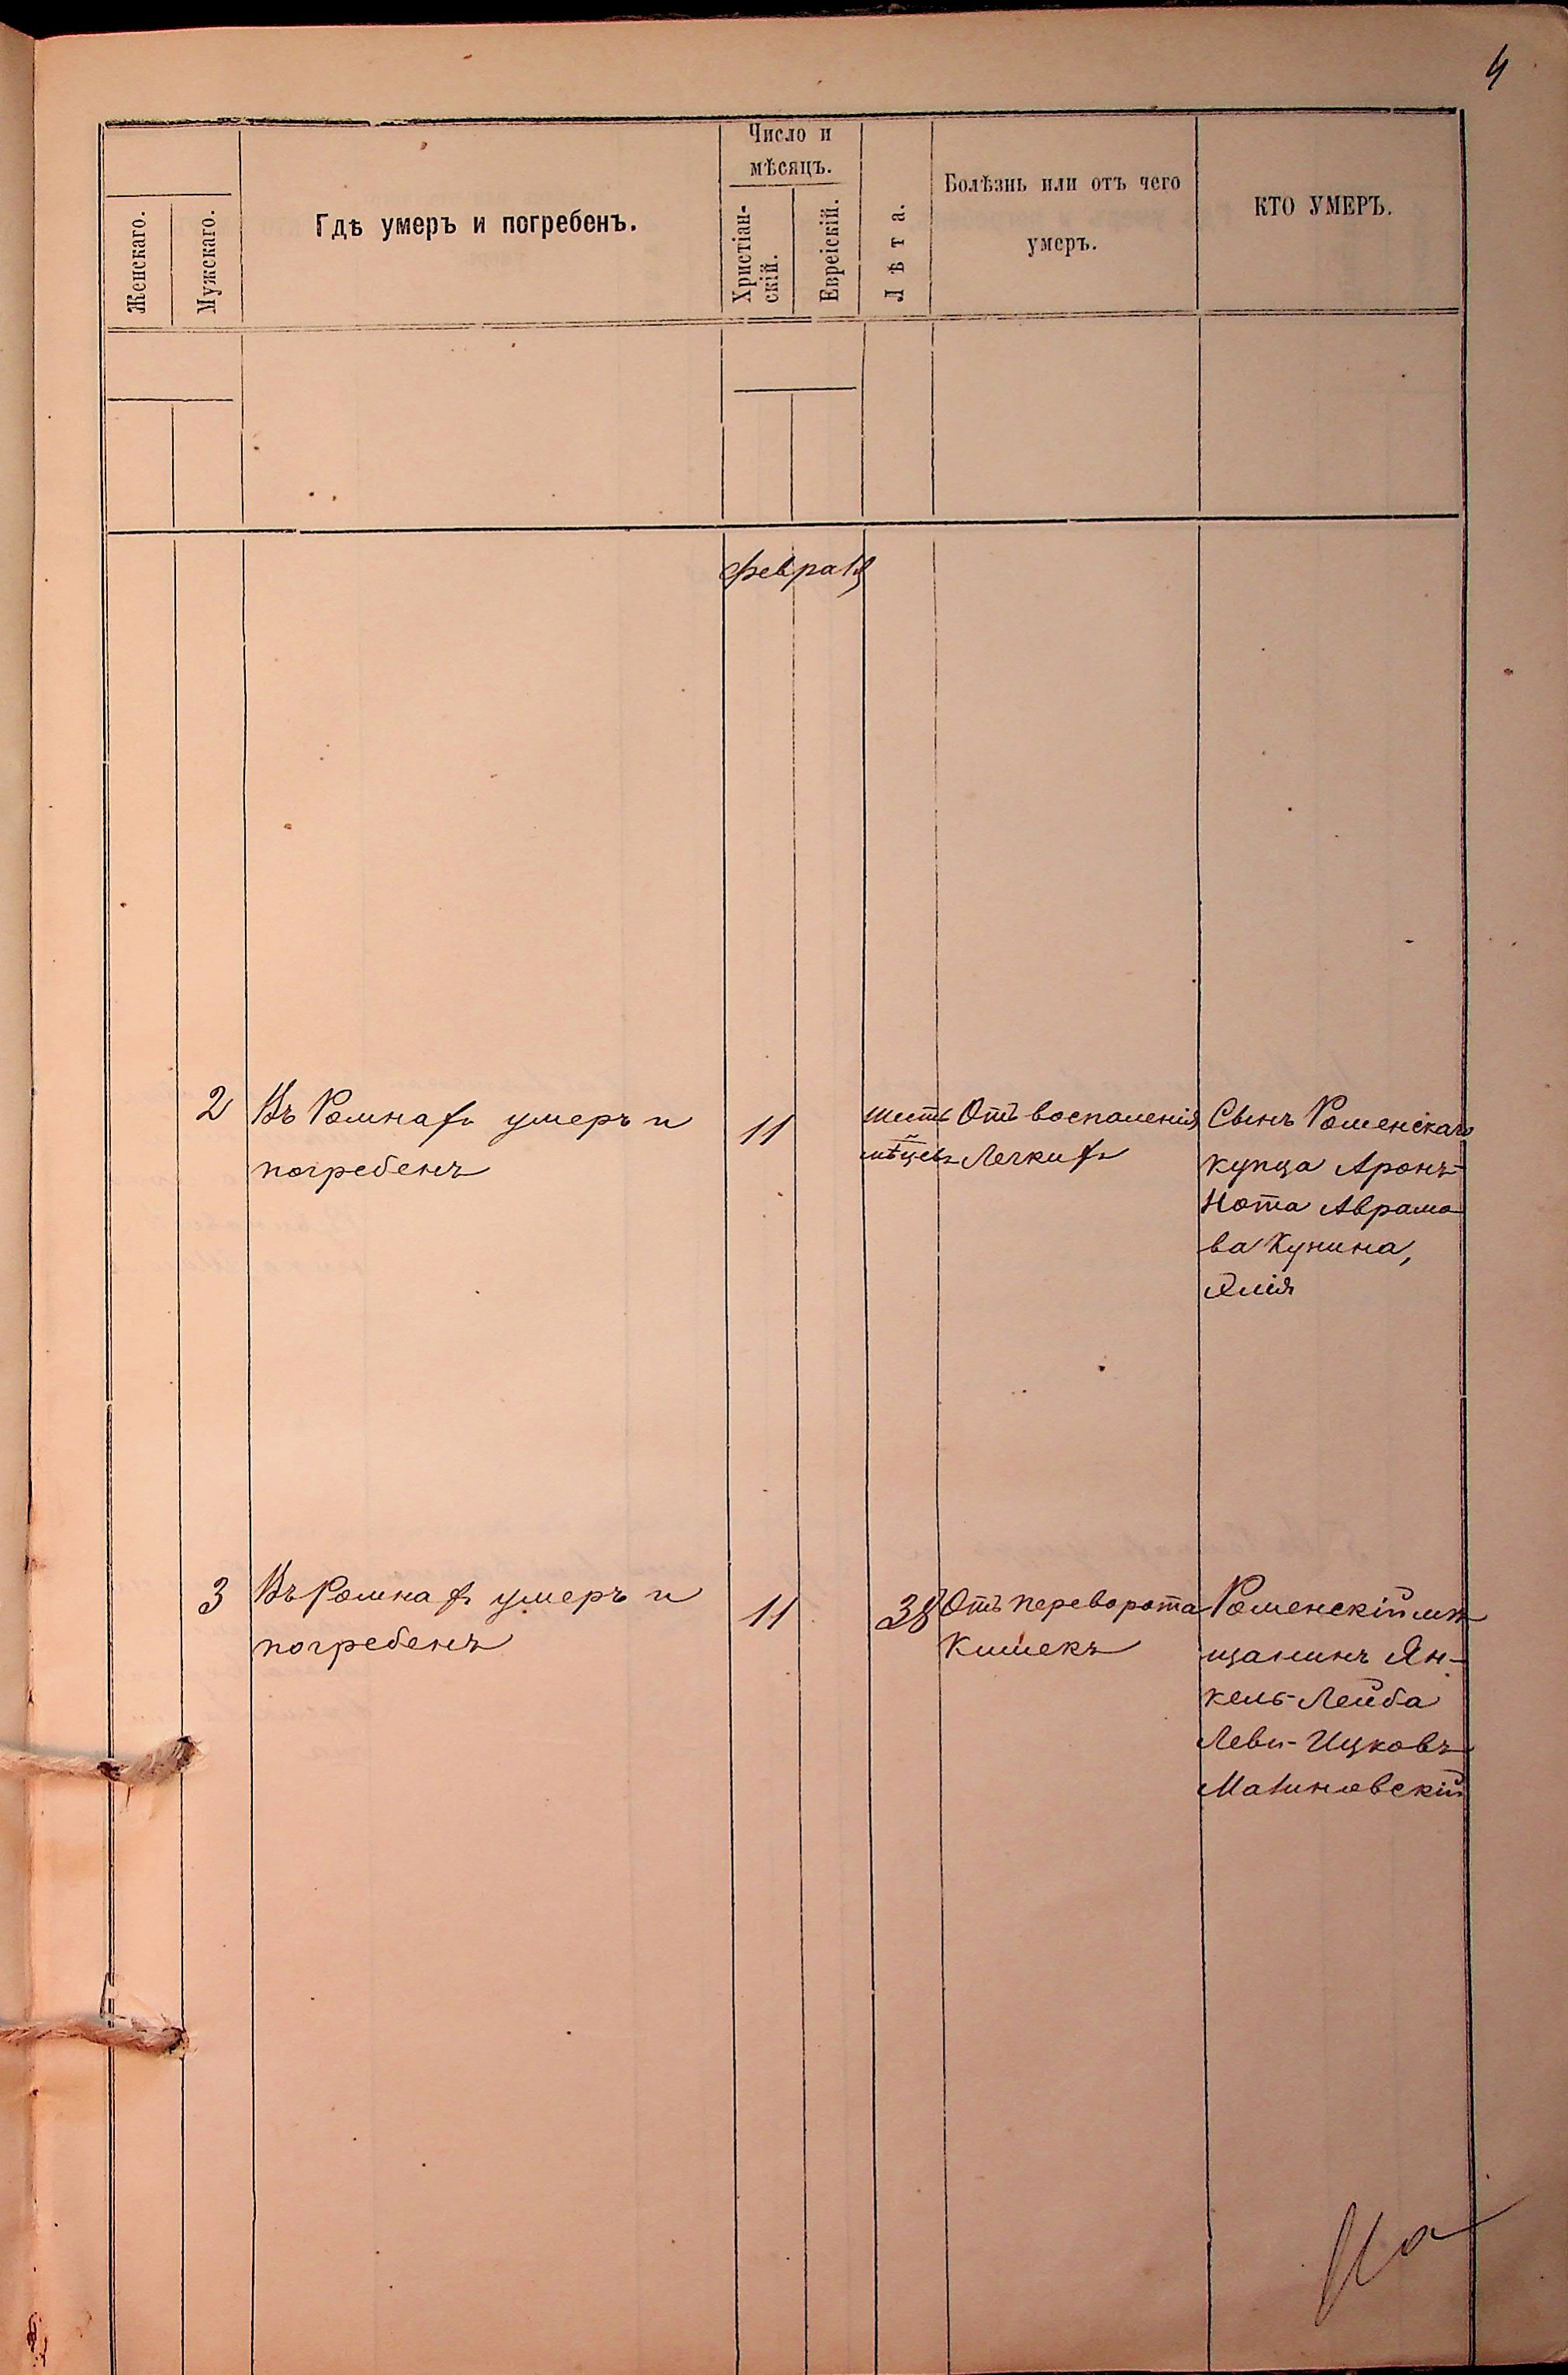 4
Женскаго.
Мужскаго.
Гдѣ умеръ и погребенъ.
Число и
мѣсяцъ.
Христіан-
скій.
Евреіскій.
Лѣта.
Болѣзнь или отъ чего
умеръ.
КТО УМЕРЪ.
февраля
2
Въ Ромнахъ умеръ и
погребенъ
11
шесть
мѣцевъ
Отъ воспаленія
Легкихъ
Сынъ Роменскаго
купца Аронъ-
Нота Аврамо
ва Кунина,
3
Въ Ромнахъ умеръ и
погребенъ
11
38
Отъ переворота
Кишекъ
Роменскій мѣ
щанинъ Ян-
кель-Лейба
Леви-Ицковъ
Малиновскій
На